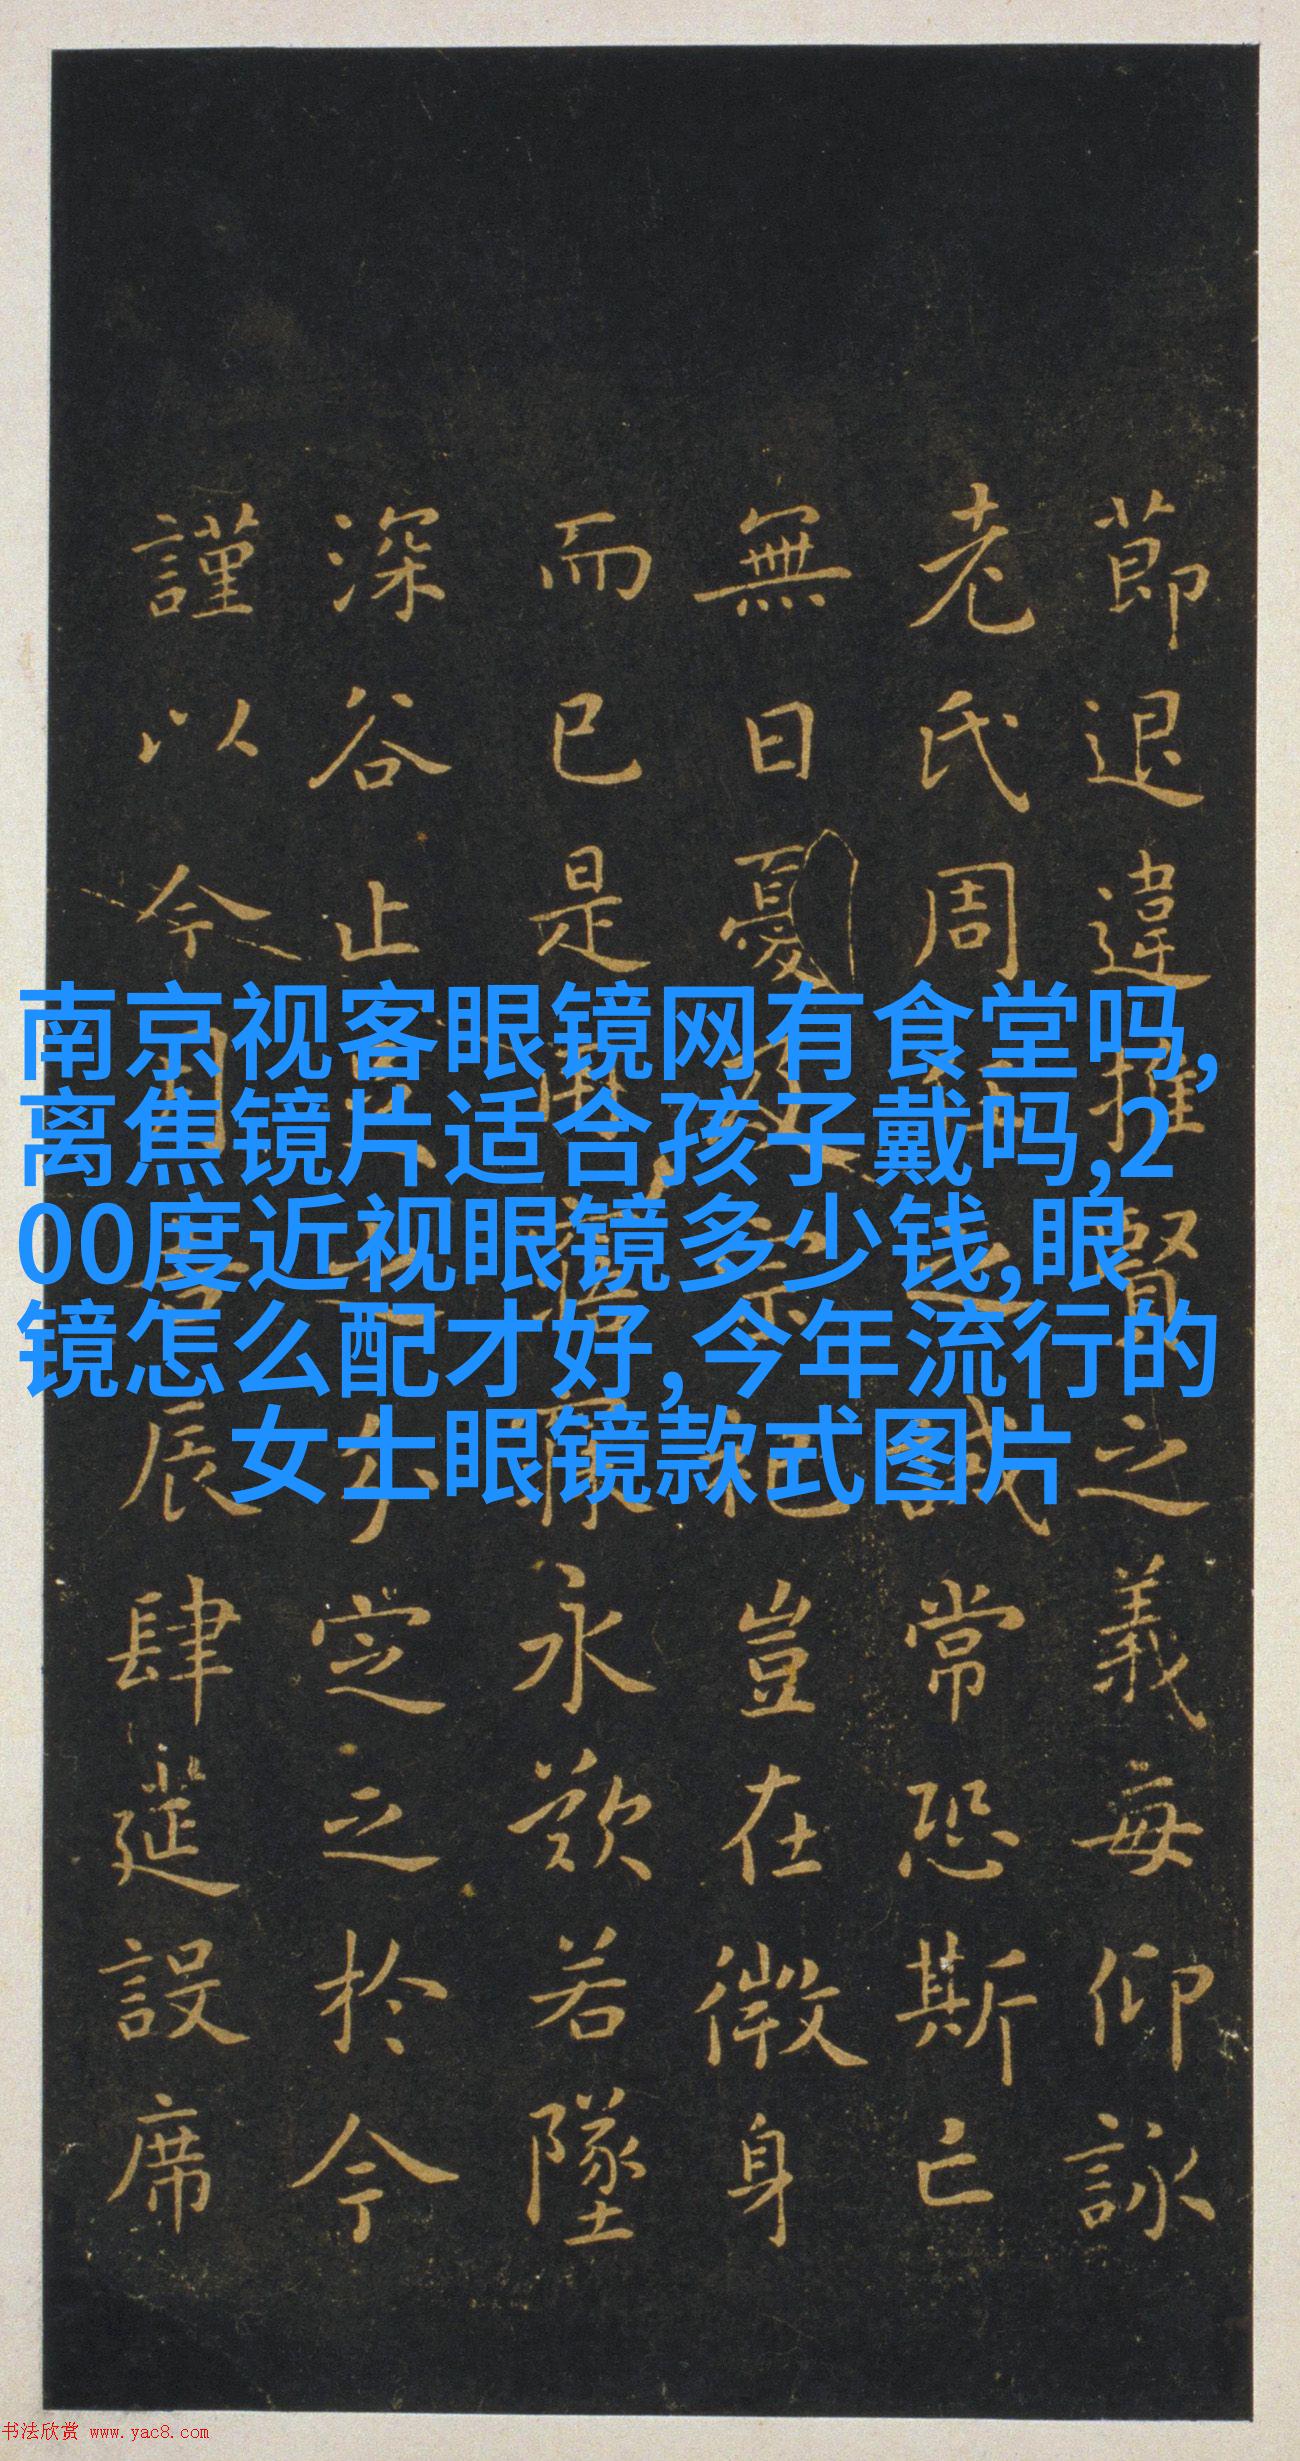 莭退違推賢之義每仰詠
老氏周任之誡常恐斯亡
無日憂及宗祀豈在微身
而已是用寤寐永歎若墜
深谷止足之分定之於今
謹以今月吉辰肆筵設席
南京视客眼镜网有食堂吗,
离焦镜片适合孩子戴吗,2
00度近视眼镜多少钱,眼
镜怎么配才好, 今年流行的
女士眼镜款式图片
书法欣赏 www.yac8.com